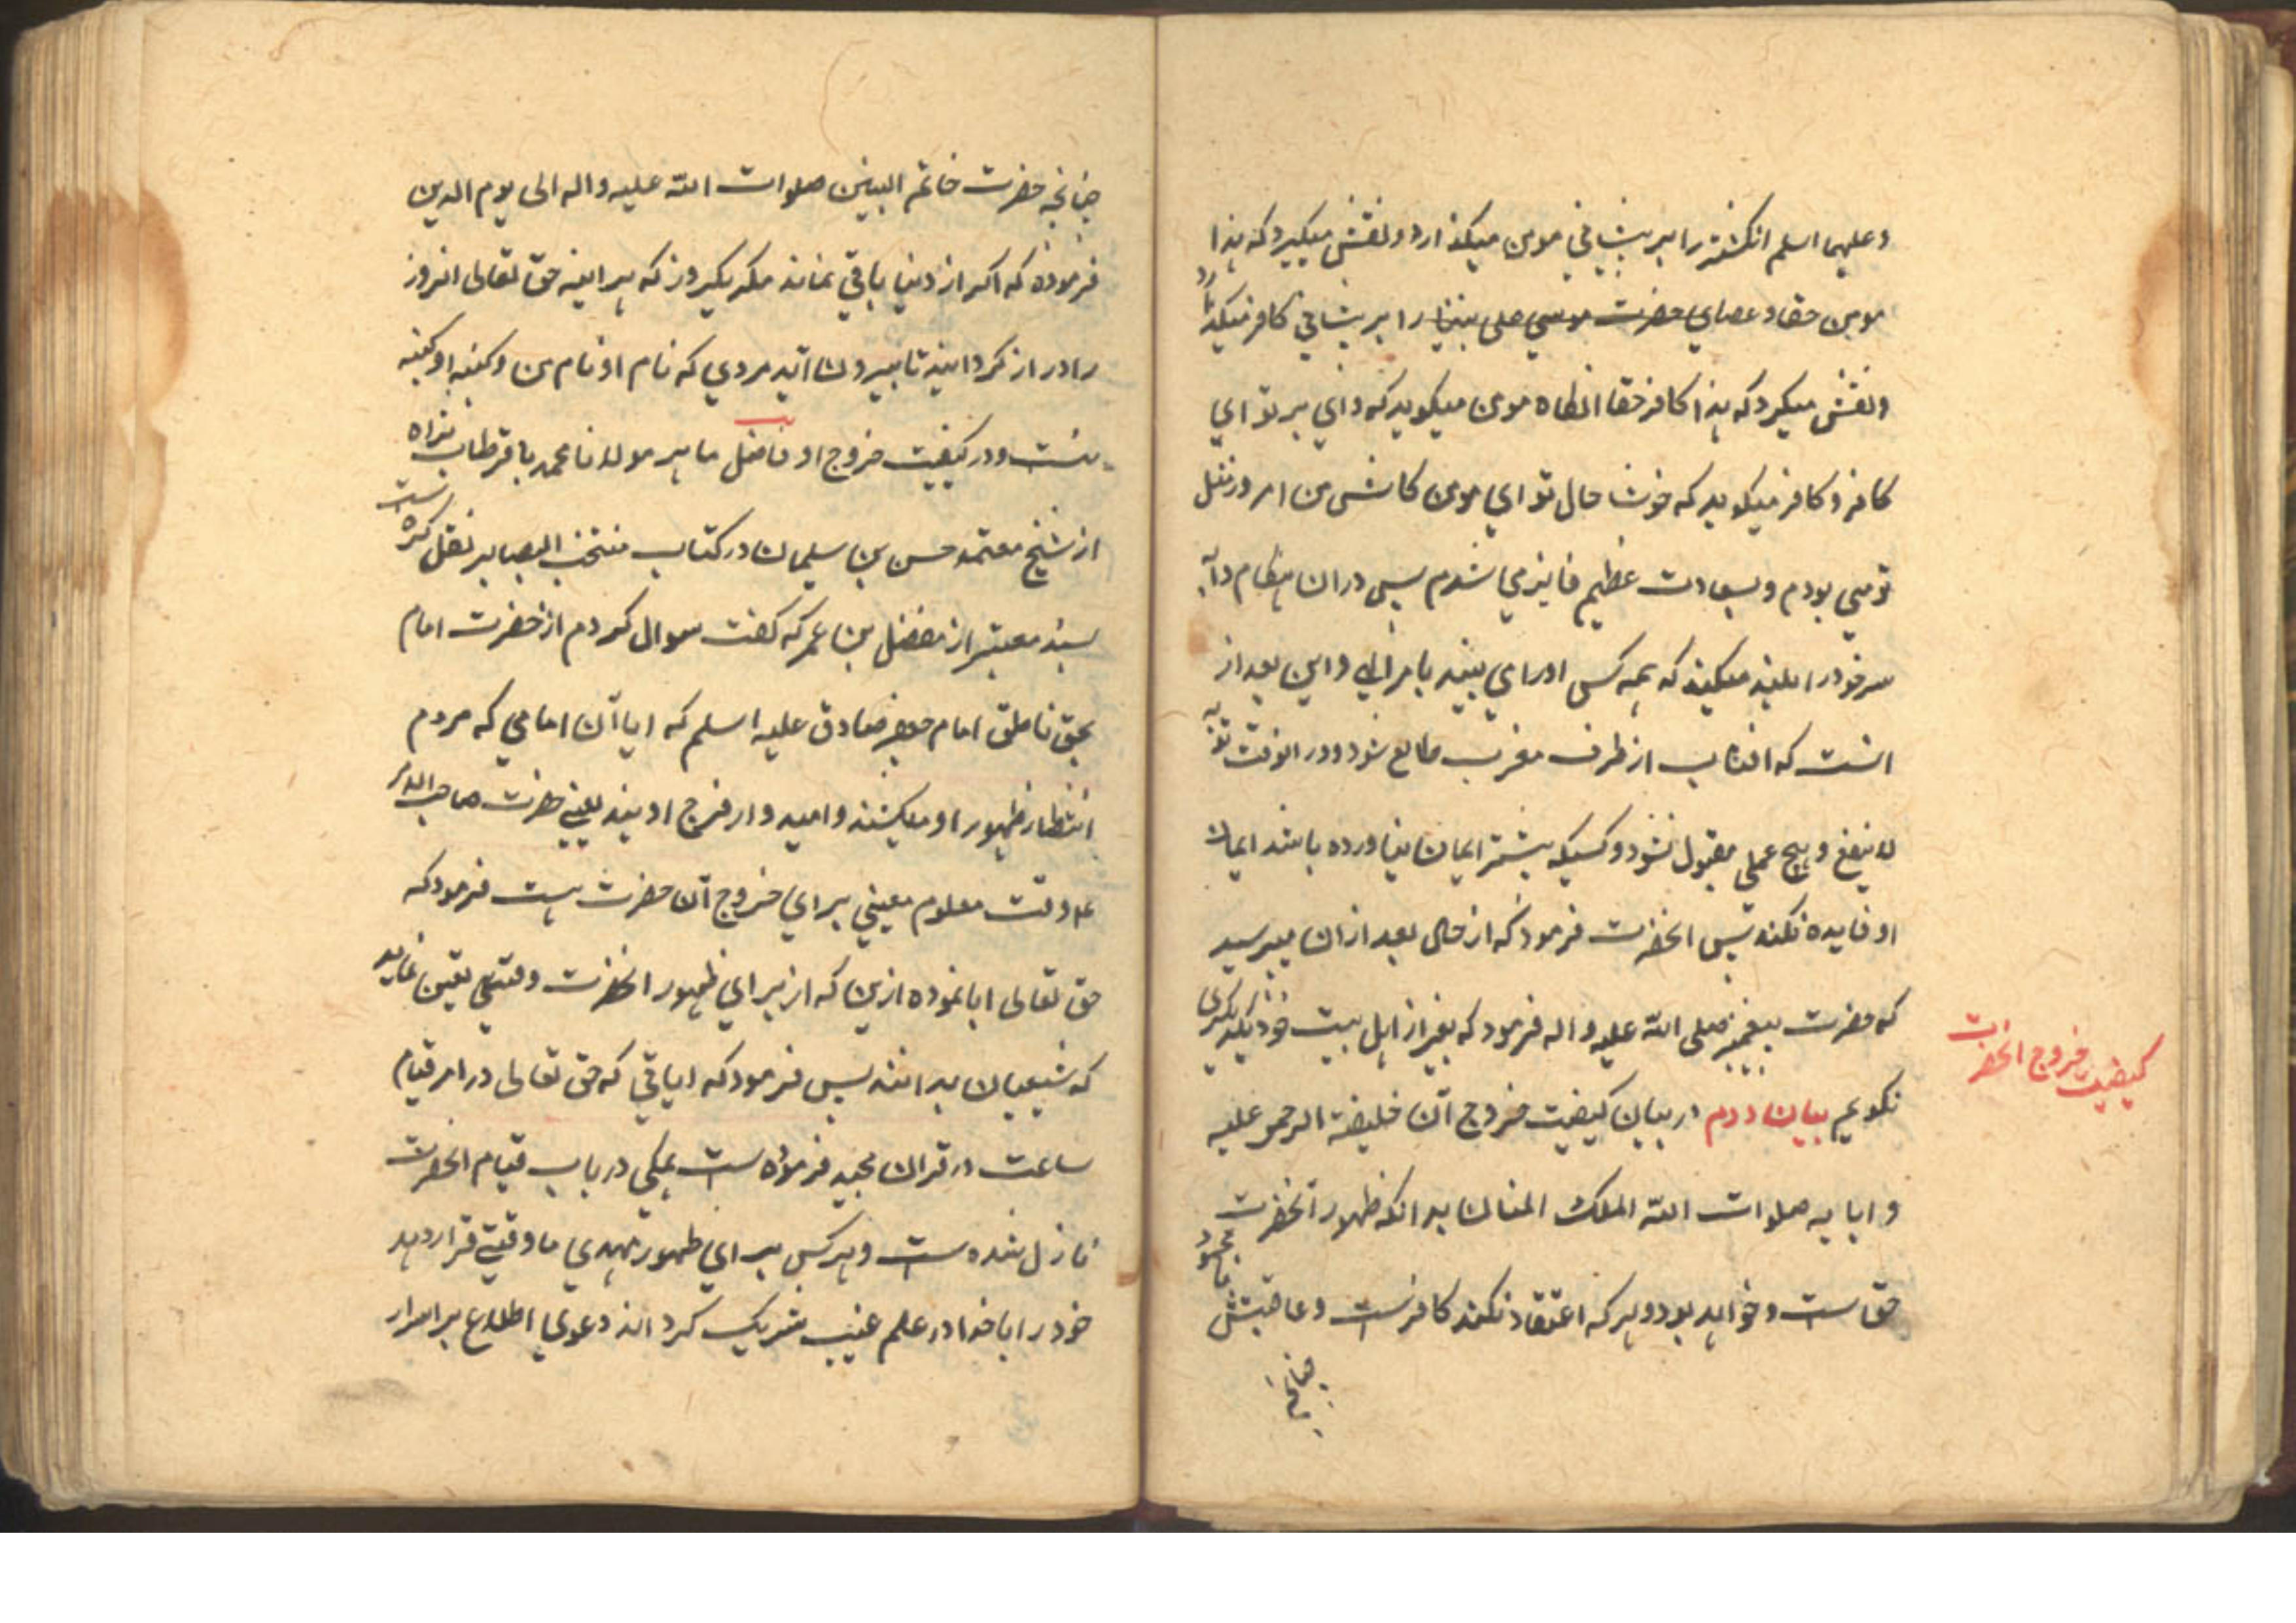 و علیهما اسلم انکشتر را بر پیشانی مومن میکذارد و نقش میکیرد که هذا
مومن حقا و عصای حضرت موسی علی نبینا را بر پیشانی کافر میکذارد
و نقش میکیرد که هذا کافر حقا انکاه مومن میکوید که وای بر تو ای
کافر و کافر میکوید که خوشا حال تو ای مومن کاش من امروز مثل
تو می بودم و بسعادت عظیم فایز می شدم پس در ان هنکام دابه
سر خود را بلند میکند که همه کس او را می بیند بامر الهی و این بعد از
انست که افتاب از طرف مغرب طالع شود و در انوقت توبه
لا ینفع و هیچ عملی مقبول نشود و کسیکه پیشتر ایمان نیاورده باشد ایمان
او فایده نکند پس انحضرت فرمود که از حال بعد از ان مپرسید
که حضرت پیغمبر صلی الله علیه و اله فرمود که بغیر از اهل بیت خود بدیکری
نکویم بیان دوم در بیان کیفیت خروج آن خلیفة الرحمن علیه
و ابایه صلوات الله الملک المنان بدانکه ظهور آنحضرت
حق است و خواهد بود و هر که اعتقاد نکند کافرست و عاقبتش نامحمود
چنانچه
کیفیت خروج انحضرت
چنانچه حضرت خاتم النبیین صلوات الله علیه و اله الی یوم الدین
فرموده که اکر از دنیا باقی نماند مکر یکروز که هر اینه حق تعالی انروز
را دراز کرداند تا بیرون آید مردی که نام او نام من و کنیه او کنیه
منست و در کیفیت خروج او فاضل ماهر مولانا محمد باقر طاب ثراه
از شیخ معتمد حسن بن سلیمان در کتاب منتخب البصایر نقل کرده است
بسند معتبر از مفضل بن عمر که کفت سوال کردم از حضرت امام
بحق ناطق امام جعفر صادق علیه اسلم که ایا آن امامی که مردم
انتظار ظهور او میکشند و امیدوار فرج اویند یعنی حضرت صاحب الامر
ع م وقت معلوم معینی برای خروج آن حضرت هست فرمود که
حق تعالی ابا نموده ازین که از برای ظهور انحضرت وقتی تعین نماید
که شیعیان بدانند پس فرمود که ایاتی که حق تعالی در امر قیام
ساعت در قران مجید فرموده است همکی در باب قیام انحضرت
نازل شده ست و هر کس برای ظهور مهدی ما وقتی قرار دهد
خود را با خدا در علم غیب شریک کرداند دعوی اطلاع بر اسرار